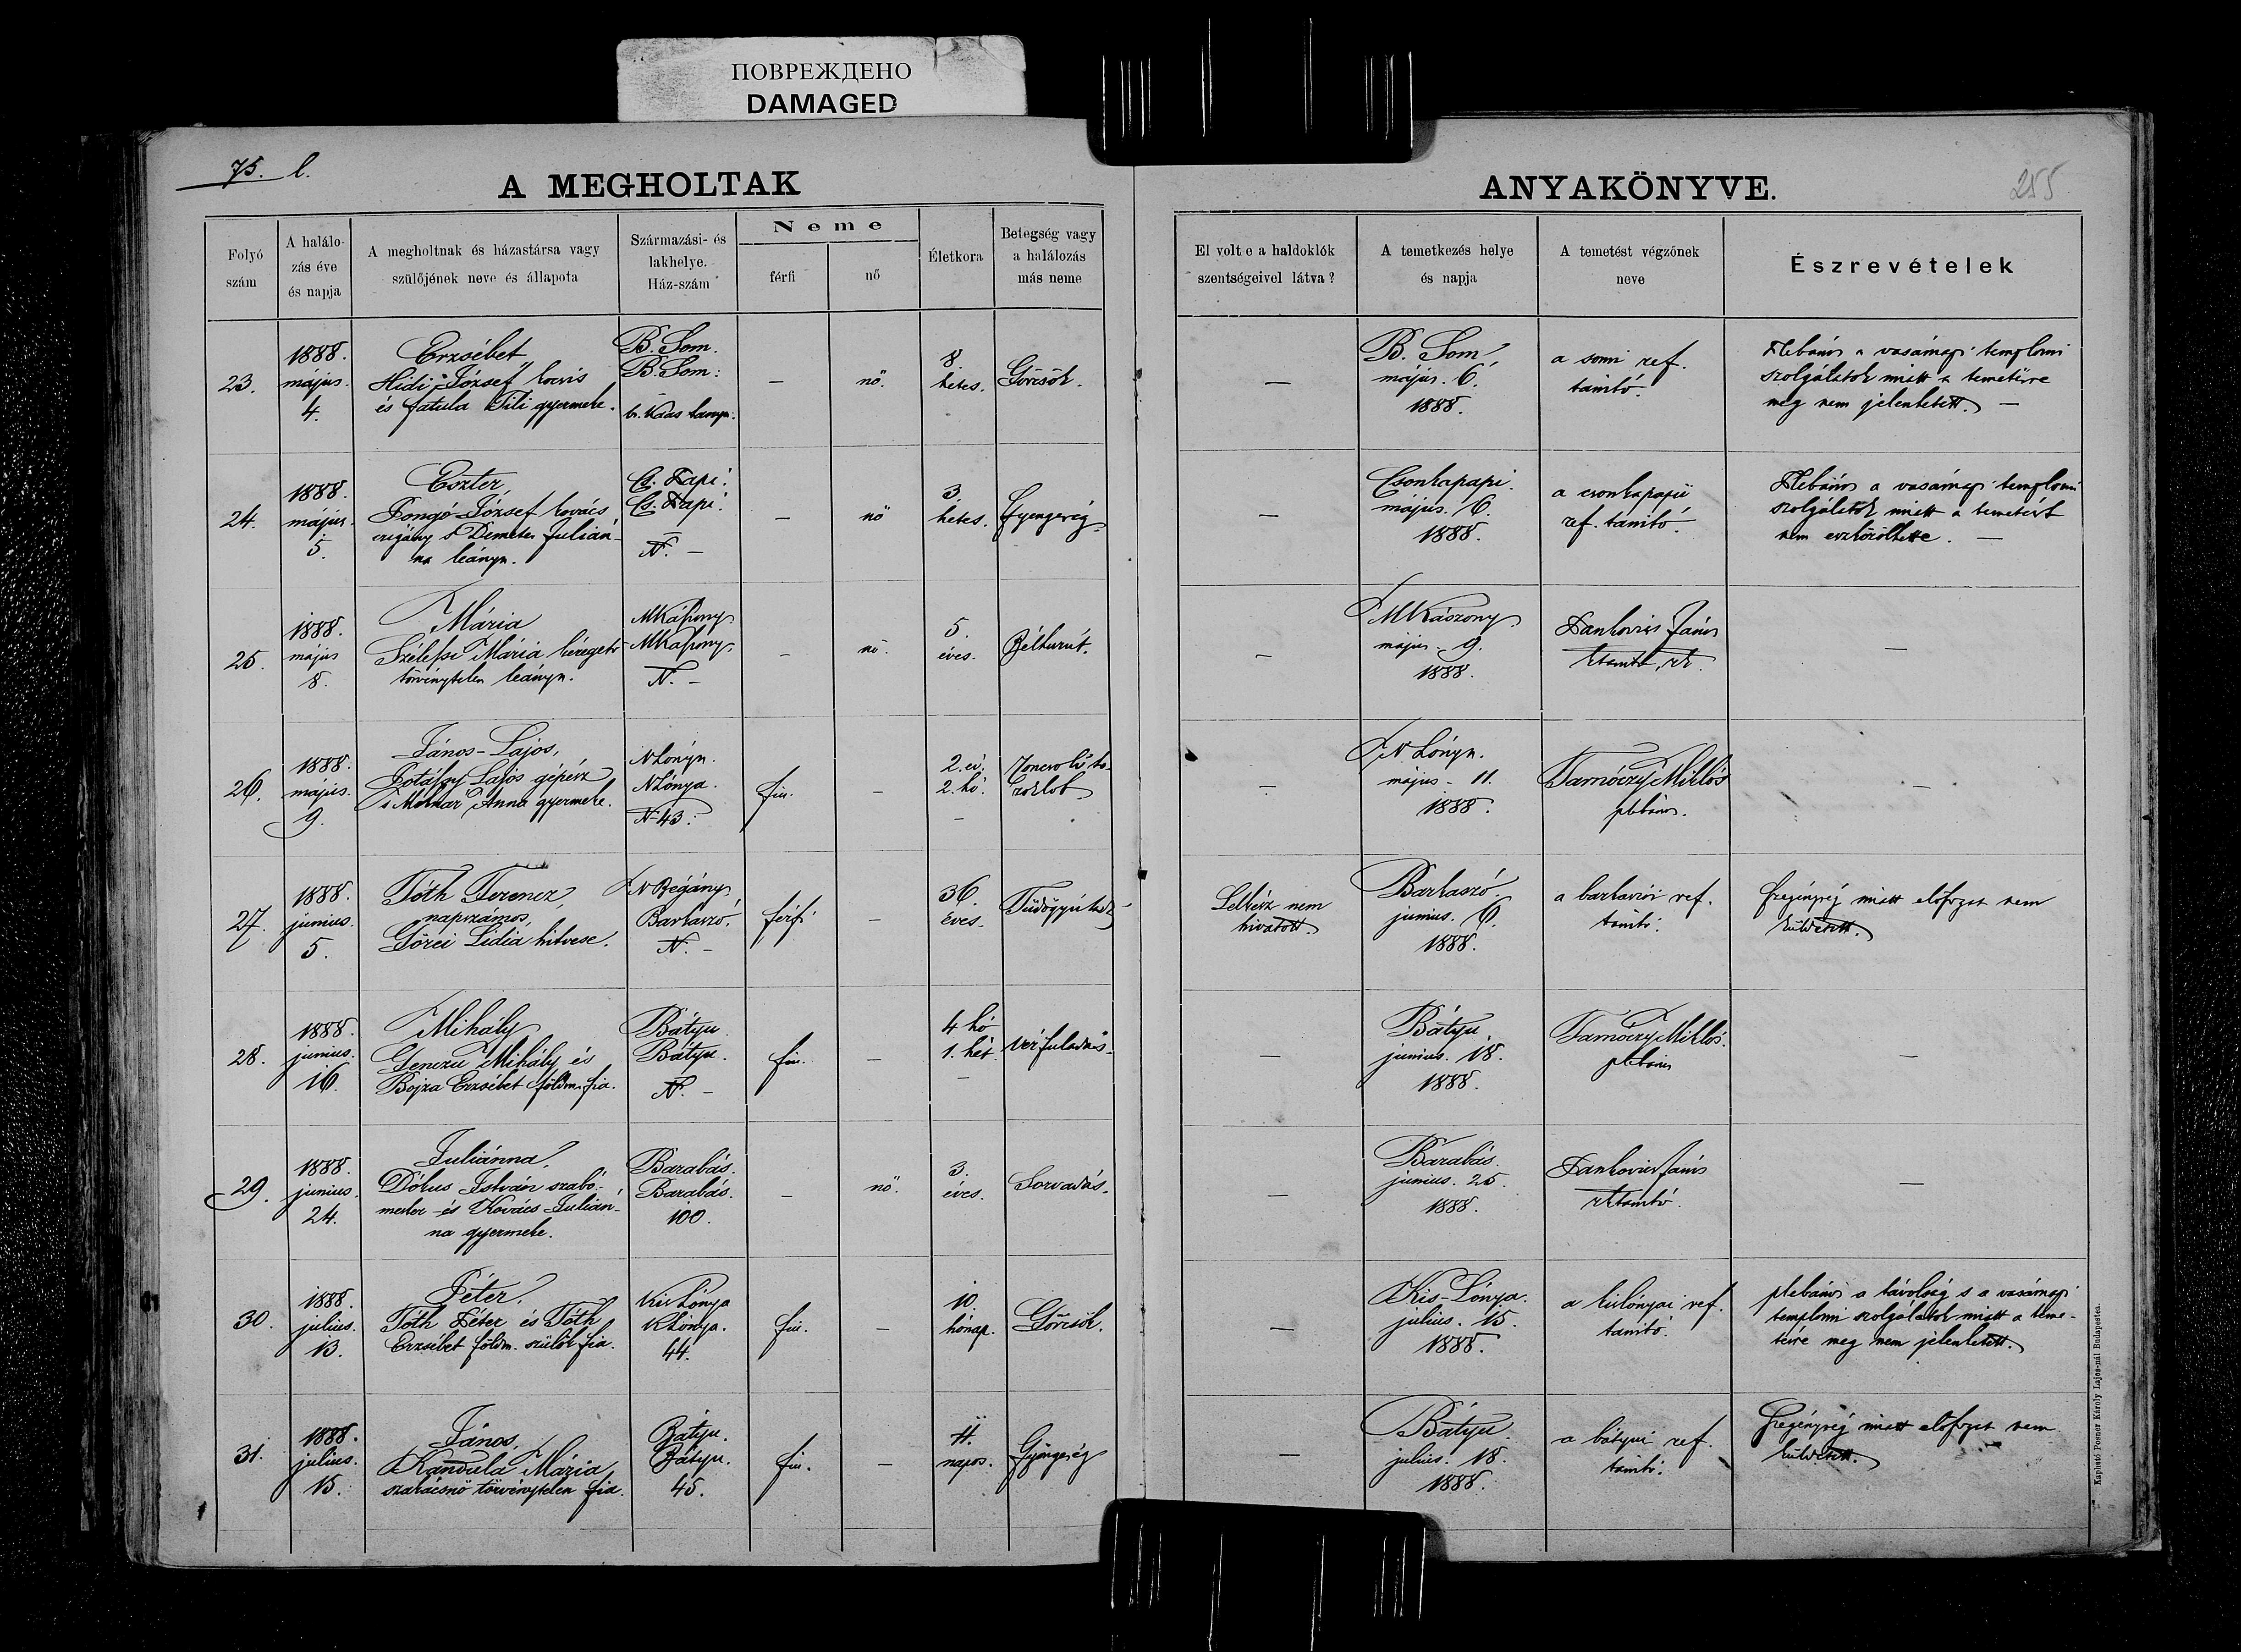 ПОВРЕЖДЕНО
DAMAGED
75. l.
A MEGHOLTAK
ANYAKÖNYVE.
255
Folyó szám
A halálozás éve és napja
A megholtnak és házastársa vagy szülőjének neve és állapota
Származási- és lakhelye. Ház-szám
Neme
férfi
nő
Életkora
Betegség vagy a halálozás más neme
El volt e a haldoklók szentségeivel látva?
A temetkezés helye és napja
A temetést végzőnek neve
Észrevételek
23.
1888. május. 4.
Erzsébet
Hidi József kocsis
és Tili gyermeke.
B. Som.
B. Som.
—
nő.
8. hetes.
Görcsök.
—
B. Som,
május. 6.
1888.
a somi ref.
tanító.
Plebános a vasárnapi templomi
szolgálatok miatt a temetésre
meg nem jelenhetett. —
24.
1888. május. 5.
Eszter,
József kovács
czigány s Demeter Julián-
na leánya.
Cs. Papi.
Cs. Papi.
N. —
—
nő
3. hetes.
Gyengeség.
—
Csonkapapi.
május. 6.
1888.
a csonkapapii
ref. tanító.
Plebános a vasárnapi templomi
szolgálatok miatt a temetést
nem eszközölhette. —
25.
1888. május 8.
Mária
Mária
törvénytelen leánya.
MKaszony
MKaszony.
N. —
—
nő.
5. éves.
Bélhurut.
—
MKászony.
május. 9.
1888.
Pankovics János
ktanító,
—
26.
1888. május. 9.
János-Lajos,
Lajos gépész
s Molnár Anna gyermeke.
NLónya.
NLónya.
N 43.
fiu.
—
2. év. 2. hó. —
Roncsoló to-
roklob
—
N Lónya.
május - 11.
1888.
Tarnóczy Miklós
plébános.
—
27.
1888. junius. 5.
Tóth Ferencz,
napszámos,
Göczi Lidia hitvese.
N Begány.
Barkaszó.
N. —
férfi
—
36. éves.
Lelkész nem
hivatott.
Barkaszó.
junius. 6.
1888.
a barkaszói ref.
tanító.
Szegénység miatt előfogat nem
küldetett.
28.
1888. junius. 16.
Mihály
Mihály és
Bojza Erzsébet földm. fia.
Bátyu.
Bátyu.
N. —
fiu.
—
4 hó
1. hét
—
vérfuladás.
—
Bátyu.
junius. 18.
1888.
Tarnóczy Miklós.
plébános
—
29.
1888. junius. 24.
Juliánna,
Dókus István szabó-
mester és Kovács Julián-
na gyermeke.
Barabás.
Barabás.
100.
—
nő.
3. éves.
Sorvadás.
—
Barabás.
junius. 25.
1888.
Pankovics János
rktanító.
—
30.
1888. julius. 13.
Péter.
Tóth Péter és Tóth
Erzsébet földm. szülők fia.
Kis Lónya
KLónya.
44.
fiu.
—
10. hónap.
Görcsök.
—
Kis-Lónya.
julius. 15.
1888.
a kislónyai ref.
tanító.
plebános a távolság s a vasárnapi
templomi szolgálatok miatt a teme-
tésre meg nem jelenhetett.
31.
1888. julius. 15.
János,
Kandula Mária
szakácsnő törvénytelen fia.
Bátyu.
Bátyu.
45.
fiu.
—
napos.
Gyöngeség
—
Bátyu.
julius. 18.
1888.
a bátyui ref.
tanító.
Szegénység miatt előfogat nem
küldetett.
Kapható Posner Károly Lajos-nál Budapesten.